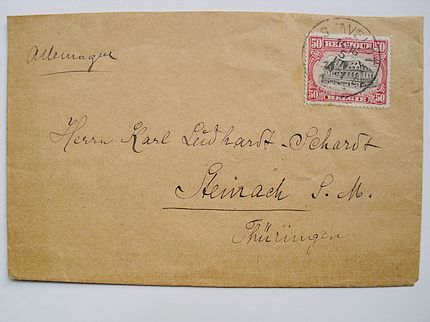 50 BELGIQUE 50
50 BELGIË 50
Allemagne
Herrn Karl Leidhardt-Schardt
Steinach S. M.
Thüringen